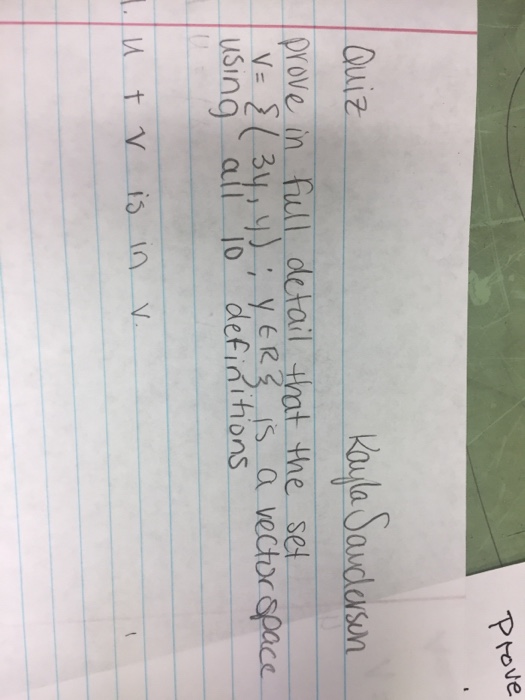 Prove
Quiz Kayla Sanderson
prove in full detail that the set
V = {(3y, y) ; y ∈ R} is a vector space
using all 10 definitions
1. u + v is in V.